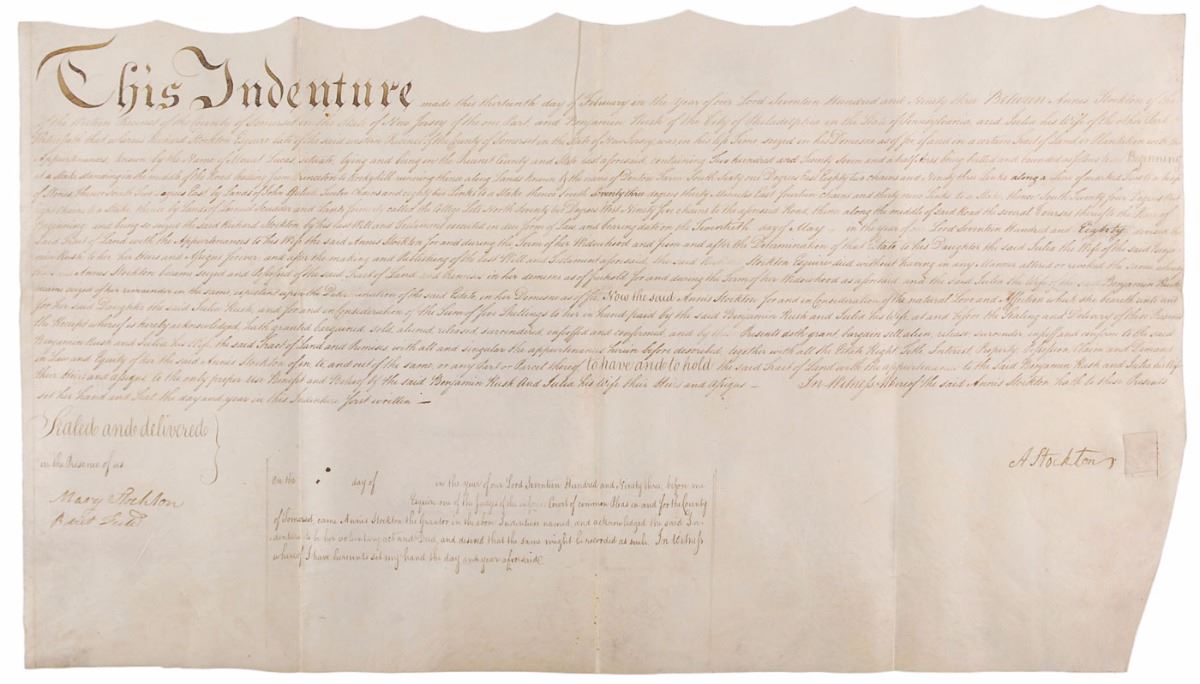 This Indenture made this thirteenth day of February in the Year of our Lord Seventeen Hundred and Ninety three Between Annis Stockton of the
of the Western Precinct of the County of Somerset in the State of New Jersey of the one Part and Benjamin Rush of the City of Philadelphia in the State of Pennsylvania, and Julia his Wife of the other Part
Whereas Richard Stockton Esquire late of the said western Precinct of the County of Somerset in the State of New Jersey, was in his life Time seized in his Demesne as of fee of and in a certain Tract of Land or Plantation with the
Appurtenances, known by the Name of Mount Lucas situate, lying and being in the Precinct County and State last aforesaid, containing Two hundred and Twenty Seven and a half Acres being butted and bounded as follows to wit Beginning
at a stake standing in the middle of the Road leading from Princeton to Rockyhill running thence along Lands known by the name of Farm South Sixty one Degrees East Eighty two chains and Ninety three links along a line of marked Trees to a heap
of Stones thence South Degrees East by Lands of John Twelve Chains and eighty six Links to a Stake thence South Seventy three degrees thirty Minutes East fourteen chains and thirty nine Links to a Stake, thence South Seventy four Degrees West
eight Chains to a Stake thence by Lands of Scudder and Lands formerly called the College Lots North Seventy two Degrees West Ninety five chains to the aforesaid Road, thence along the middle of said Road the several Courses thereof to the Place of
Beginning and being so seized the said Richard Stockton by his last Will and Testament executed in due form of Law and bearing date on the day of May in the year of our Lord Seventeen Hundred and Eighty devised the
said Tract of Land with the Appurtenances to his Wife the said Annis Stockton for and during the Term of her Widowhood and from and after the Determination of that Estate to his Daughter the said Julia the Wife of the said Benja
min Rush to her, her Heirs and Assigns forever, and after the making and Publishing of the last Will and Testament aforesaid, the said Stockton Esquire died without having in any Manner altered or revoked the same whereby
the said Annis Stockton became seized and Possessed of the said Tract of Land and Premises in her demesne as of freehold for and during the Term of her Widowhood as aforesaid and the said Julia the Wife of the said Benjamin Rush
seized of her remainder in the same expectant upon the Determination of the said Estate in her Demesne as of fee Now the said Annis Stockton for and in Consideration of the natural Love and Affection which she beareth unto and
for her said Daughter the said Julia Rush, and for and in Consideration of the Sum of five Shillings to her in hand paid by the said Benjamin Rush and Julia his Wife, at and before the Sealing and Delivery of these Presents
the Receipt whereof is hereby acknowledged, hath granted bargained sold, aliened, released surrendered enfeoffed and confirmed, and by these Presents doth grant bargain sell alien, release surrender enfeoff and confirm to the said
Benjamin Rush and Julia his Wife the said Tract of Land and Premises with all and singular the appurtenances herein before described, together with all the Estate Right Title, Interest Property, Possession, Claim and Demand
in Law and Equity of her the said Annis Stockton of in to and out of the same, or any Part or Parcel thereof to have and to hold the said Tract of Land with the appurtenances to the Said Benjamin Rush and Julia his Wife
their Heirs and assigns to the only proper use Benefit and Behoof of the said Benjamin Rush And Julia his Wife their Heirs and Assigns — In Witness Whereof the said Annis Stockton hath to these Presents
set her hand and Seal the day and year in this Indenture first written —
Sealed and delivered
in the Presence of us
A Stockton
Mary Stockton
On the day of in the year of our Lord Seventeen Hundred and Ninety three, before me
Esquire one of the Judges of the inferior Court of common Pleas in and for the County
of Somerset, came Annis Stockton the grantor in the above Indenture named, and acknowledged the said In-
denture to be her voluntary act and Deed, and desired that the same might be recorded as such. In Witness
whereof I have hereunto set my hand the day and year aforesaid.